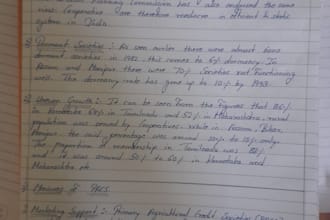 Planning Commission has also reduced the same
was. Cooperative are therefore rendered in
system in India.
Dormant Societies :- As seen earlier there were almost
dormant societies in 1982. this comes to 6% dormancy. In
Assam and Manipur there were 70% Societies not functioning
well. The dormancy rate has gone up to 10% by 1993.
Uneven Growth : It can be seen from the figures that
In Karnataka 68% in Tamilnadu and 52% in Maharashtra, rural
population was covered by Cooperatives. While in Assam, Bihar,
Manipur the said percentage was around 10% to 15% only.
The proportion of membership in Tamilnadu was
and it was around 50% to 60% in Karnataka and
Maharashtra etc
of PACS.
Marketing Support :- Primary Agricultural Credit Societies